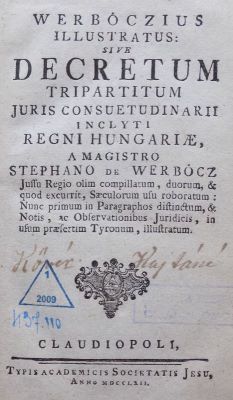 WERBŐCZIUS
ILLUSTRATUS:
SIVE
DECRETUM
TRIPARTITUM
JURIS CONSUETUDINARII
INCLYTI
REGNI HUNGARIÆ,
A MAGISTRO
STEPHANO DE WERBŐCZ
Juſſu Regio olim compillatum, duorum, &
quod excurrit, Sæculorum uſu roboratum:
Nunc primum in Paragraphos diſtinctum, &
Notis, ac Obſervationibus Juridicis, in
uſum præſertim Tyronum, illuſtratum.
1
2009
CLAUDIOPOLI,
TYPIS ACADEMICIS SOCIETATIS JESU,
ANNO MDCCLXII.